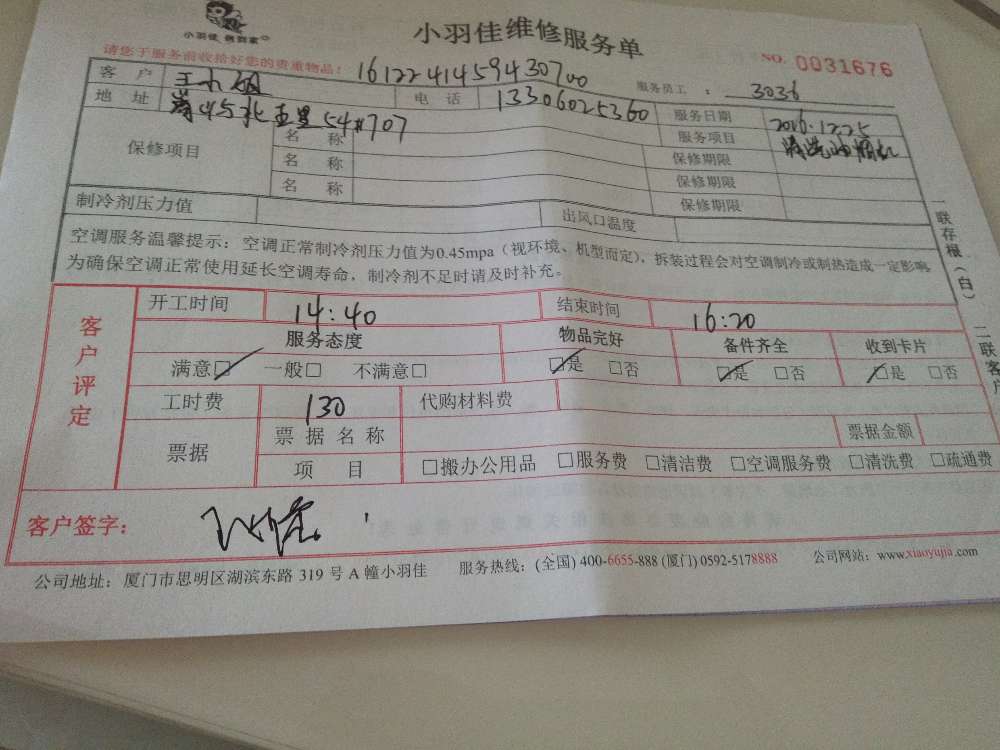 小羽佳维修服务单
请您于服务前收拾好您的贵重物品! 1612241459430700 服务员工 : 3036 NO. 0031676
客 户 电 话 13306025360 服务日期 2016.12.25
地 址 54#707 服务项目 清洗油烟机
保修项目 名 称 保修期限
名 称 保修期限
名 称 保修期限
制冷剂压力值 出风口温度
空调服务温馨提示：空调正常制冷剂压力值为0.45mpa（视环境、机型而定），拆装过程会对空调制冷或制热造成一定影响
为确保空调正常使用延长空调寿命，制冷剂不足时请及时补充。
一联存根（白）
二联客户
客户评定
开工时间 14:40 结束时间 16:20
服务态度 物品完好 备件齐全 收到卡片
满意☑ 一般□ 不满意□ ☑是 □否 ☑是 □否 ☑是 □否
工时费 130 代购材料费
票据 票据名称 票据金额
项 目 □搬办公用品 □服务费 □清洁费 □空调服务费 □清洗费 □疏通费
客户签字：
公司地址：厦门市思明区湖滨东路 319 号 A 幢小羽佳 服务热线：(全国) 400-6655-888 (厦门) 0592-5178888 公司网站：www.xiaoyujia.com